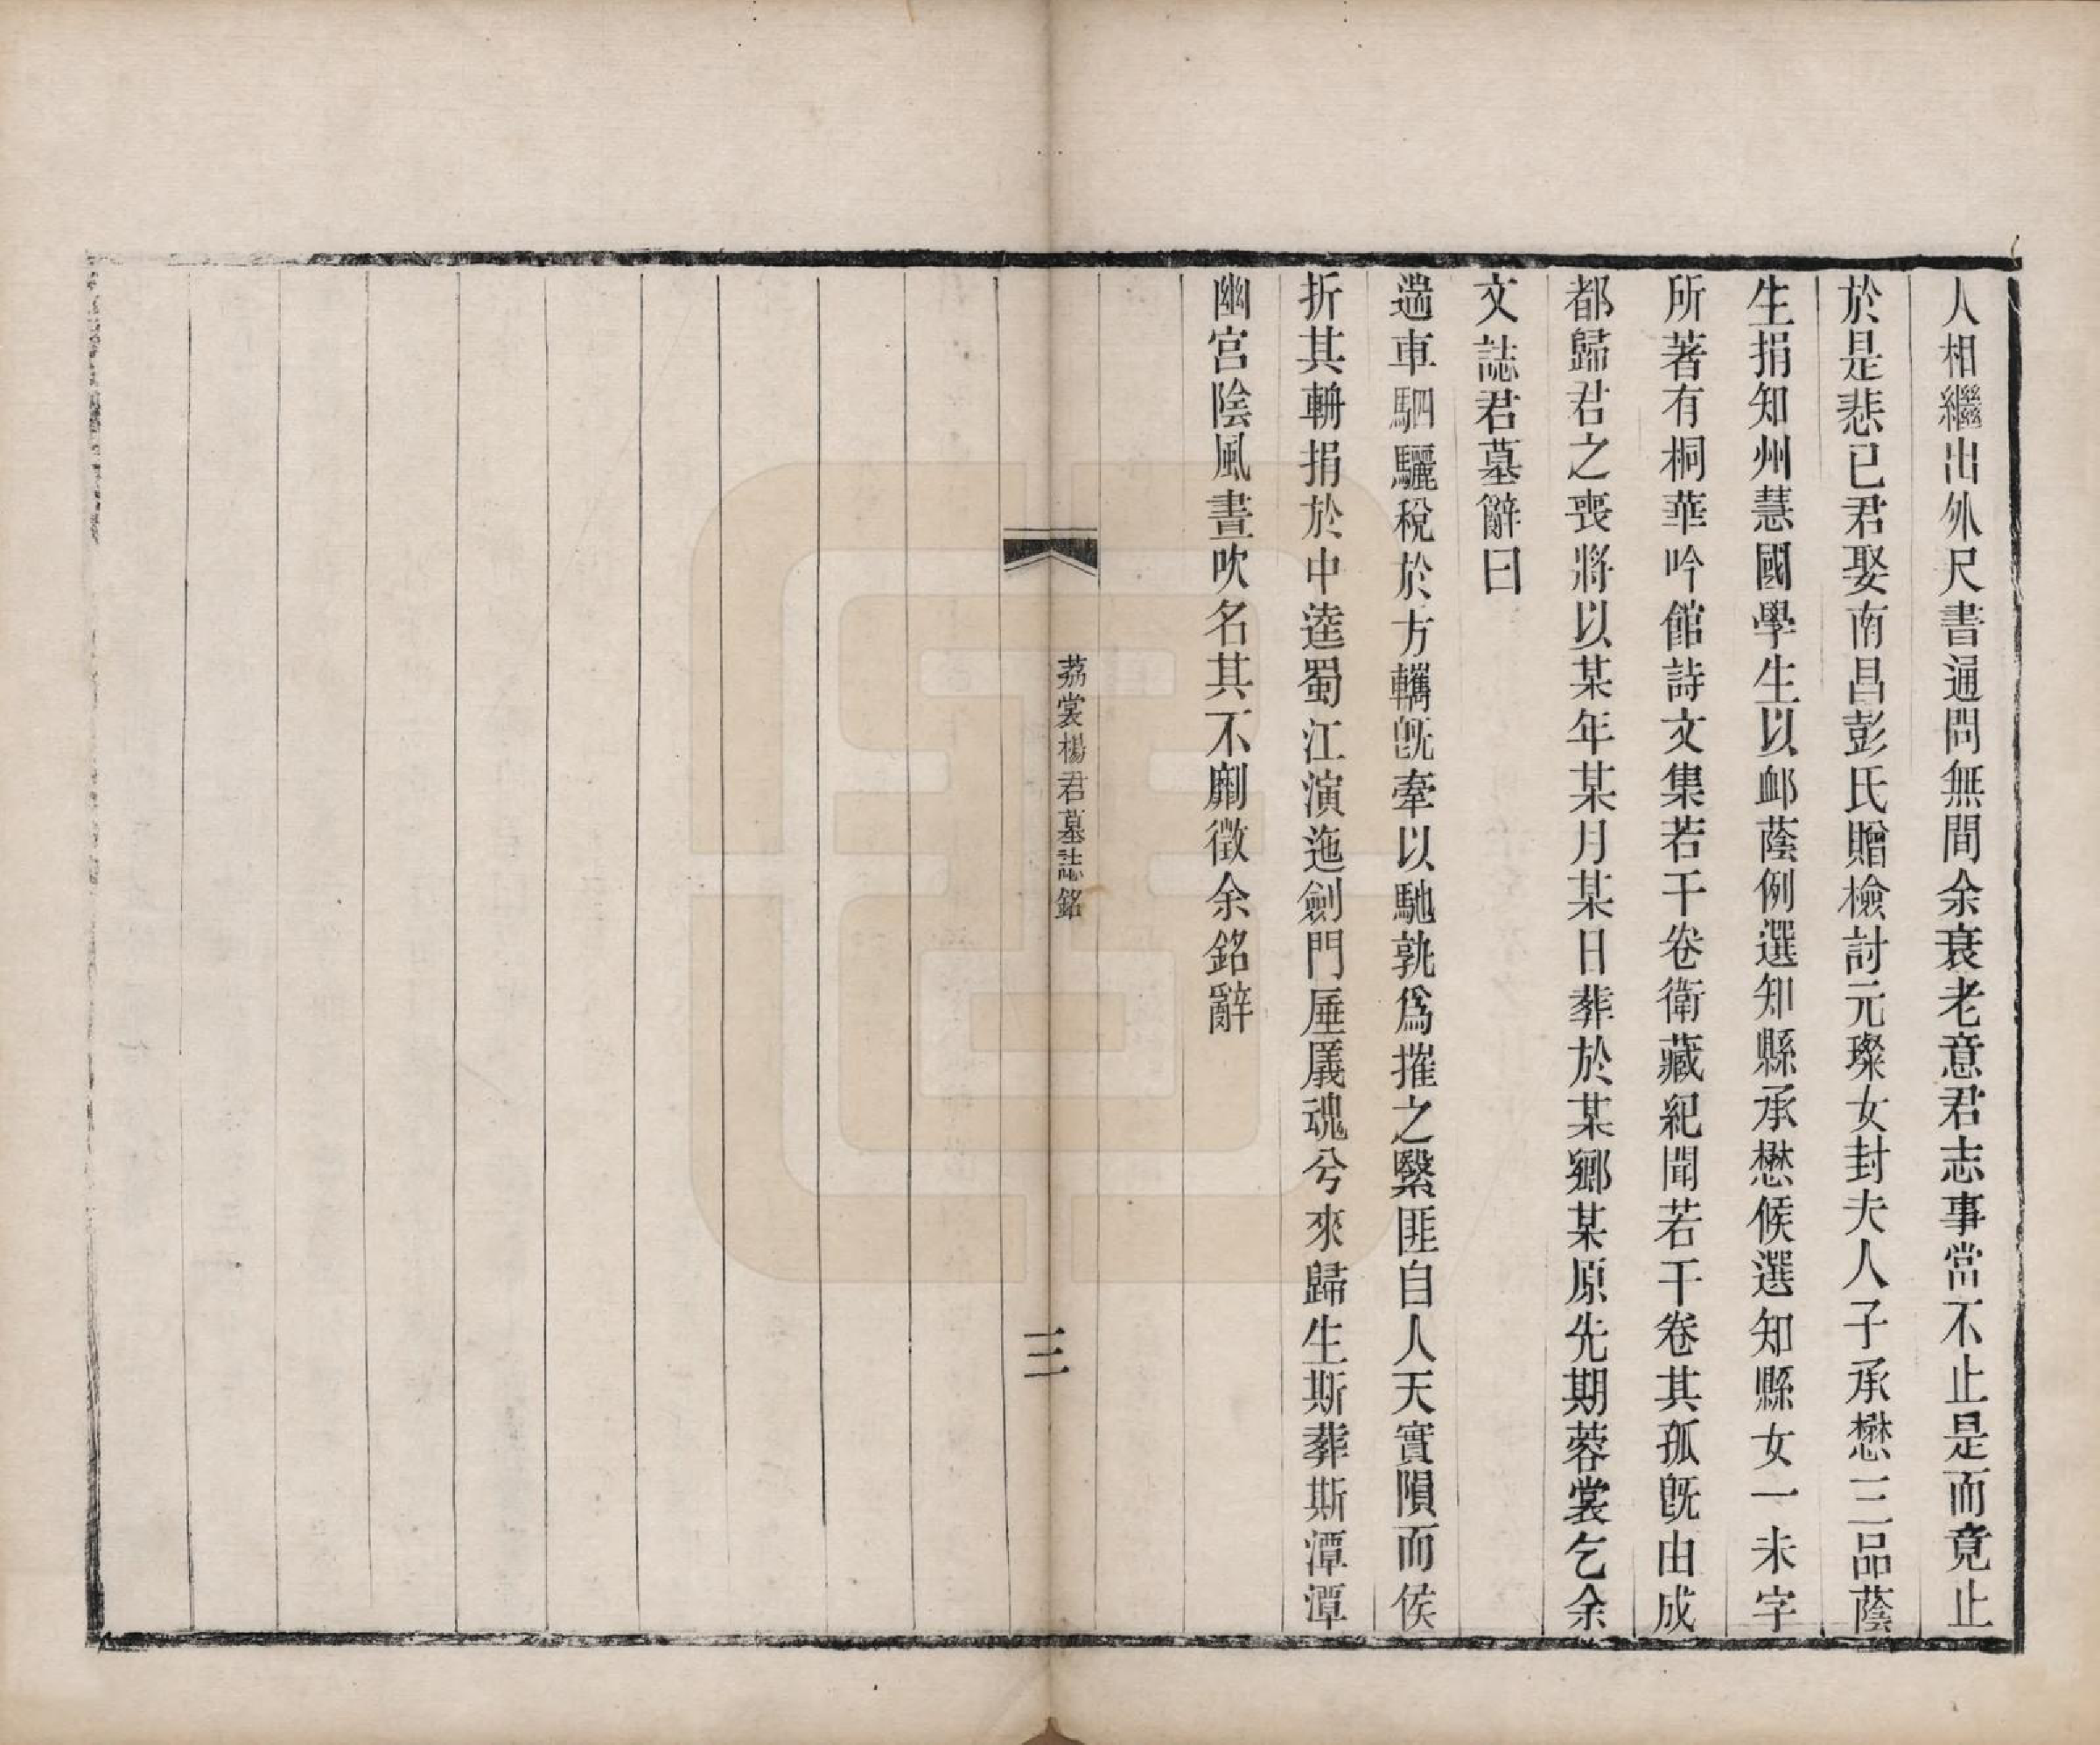 人相繼出外尺書通問無間余衰老意君志事當不止是而竟止
於是悲已君娶南昌彭氏贈檢討元璨女封夫人子承懋三品蔭
生捐知州慧國學生以卹蔭例選知縣承懋候選知縣女一未字
所著有桐華吟館詩文集若干卷衛藏紀聞若干卷其孤旣由成
都歸君之喪將以某年某月某日葬於某鄉某原先期蓉裳乞余
文誌君墓辭曰
遄車駟驪稅於方轊旣牽以馳孰爲摧之繄匪自人天實隕而侯
折其輈捐於中逵蜀江演迤劍門厜㕒魂兮來歸生斯葬斯潭潭
幽宮陰風晝吹名其不劘徵余銘辭
荔裳楊君墓誌銘
三